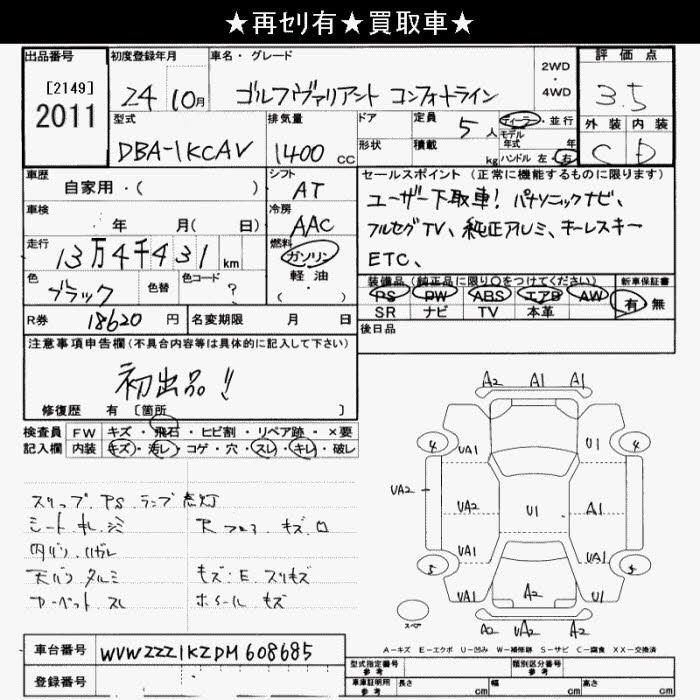 ★再セリ有★買取車★
出品番号 初度登録年月 車名・グレード 2WD・4WD 評価点
[2149] 2011 24 10月 ゴルフヴァリアント コンフォートライン 3.5
型式 排気量 ドア 定員 5人 ディーラー・並行 外装 内装
DBA-1KCAV 1400cc 形状 積載 kg モデル年式 年 ハンドル 左・右 C D
車歴 シフト セールスポイント(正常に機能するものに限ります)
自家用・( ) AT ユーザー下取車! パナソニックナビ、
車検 年 月( 日) 冷房 AAC フルセグTV、純正アルミ、キーレスキー
走行 13万4千431km 燃料 ガソリン 軽油 ( ・ ) ETC、
色 色替 色コード 装備品(純正品に限り○をつけてください) 新車保証書
ブラック ? PS PW ABS エアB AW 有 無
SR ナビ TV 本革
R券 18620円 名変期限 月 日 後日品
注意事項申告欄(不具合内容等は具体的に記入して下さい)
初出品!!
修復歴 有 [箇所 ]
検査員 FW キズ・飛石・ヒビ割・リペア跡・×要
記入欄 内装 キズ・汚レ・コゲ・穴・スレ・キレ・破レ
スリップ、PS ランプ点灯
シート キレ シミ
キズ
内バリ ハガレ
天バリ タルミ キズ:E スリキズ
カーペット スレ ホイール キズ
A2 A1 A1
4 UA1 U1 4
UA2 UA2 U1 A1
UA1 UA1
5 UA1 A2 U1 5
スペア A2 UA2 A2
A-キズ E-エクボ U-凹み W-補修跡 S-サビ C-腐食 XX-交換済
車台番号 WVWZZZ1KZDM608685
型式指定番号 参考 類別区分番号 参考
登録番号 車庫証明用 参考 長さ cm 幅 cm 高さ cm